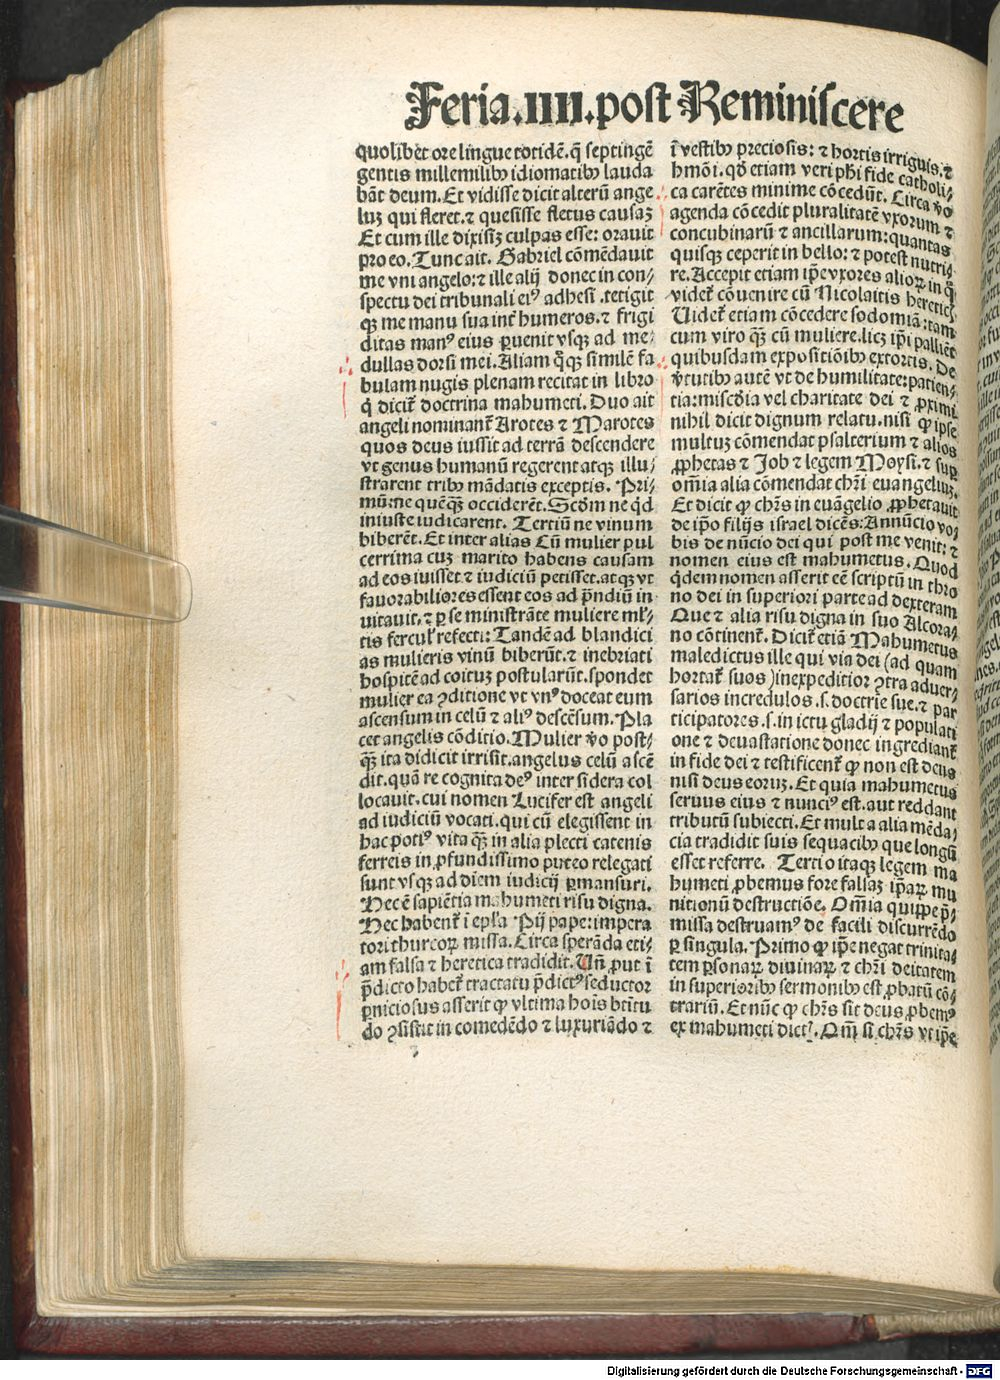 Feria.IIII.post Reminiscere
quolibet ore lingue totidē. ꝙ septingē
gentis millemilibꝰ idiomatibꝰ lauda
bāt deum. Et vidisse dicit alterū ange
luꝫ qui fleret. ⁊ quesisse fletus causaꝫ
Et cum ille dixisꝫ culpas esse: orauit
pro eo. Tunc ait. Gabriel cōmēdauit
me vni angelo: ⁊ ille alij donec in con⸗
spectu dei tribunali eiꝰ adhesi. tetigit
qꝫ me manu sua int̄ humeros. ⁊ frigi
ditas manꝰ eius ꝑuenit vsqꝫ ad me⸗
dullas dorsi mei. Aliam q̄qꝫ similē fa
bulam nugis plenam recitat in libro
q̇ dicit̄ doctrina mahumeti. Duo ait
angeli nominant̄ Arotes ⁊ Marotes
quos deus iussit ad terrā descendere
vt genus humanū regerent atqꝫ illu⸗
strarent tribꝰ mādatis exceptis. Pri⸗
mū: ne quēq̄ꝫ occiderēt. Scd̄m ne q̇d
iniuste iudicarent. Tertiū ne vinum
biberēt. Et inter alias Cū mulier pul
cerrima cuꝫ marito habens causam
ad eos iuisset ⁊ iudiciū petisset. atqꝫ vt
fauorabiliores essent eos ad prādiū in
uitauit. ⁊ ꝑ se ministrāte muliere ml̓⸗
tis fercul̓ refecti: Tandē ad blandici
as mulieris vinū biberūt. ⁊ inebriati
hospitē ad coituꝫ postularūt. spondet
mulier ea ꝯditione vt vnꝰ doceat eum
ascensum in celū ⁊ aliꝰ descēsum. Pla
cet angelis cōditio. Mulier v̄o post⸗
q̄ꝫ ita didicit irrisit. angelus celū ascē
dit. quā re cognita deꝰ inter sidera col
locauit. cui nomen Lucifer est angeli
ad iudiciū vocati. qui cū elegissent in
hac potiꝰ vita q̄ꝫ in alia plecti catenis
ferreis in ꝓfundissimo puteo relegati
sunt vsqꝫ ad diem iudicij ꝑmansuri.
Hec ē sapiētia mahumeti risu digna.
Hec habent̄ ī epl̓a Pij pape: impera
tori thurcoꝝ missa. Circa sperāda eti⸗
am falsa ⁊ heretica tradidit. Un̄ ꝓut ī
p̄dicto habet̄ tractatu p̄dictꝰ seductor
ꝑniciosus asserit ꝙ vltima hoīs btītu
do ꝯsistit in comedēdo ⁊ luxuriādo ⁊
ī vestibꝰ preciosis: ⁊ hortis irriguis. ⁊
hmōi. qd̄ etiam veri ph̄i fide catholi⸗
ca carētes minime cōcedūt. Circa v̄o
agenda cōcedit pluralitatē vxorum ⁊
concubinarū ⁊ ancillarum: quantas
quisqꝫ ceperit in bello: ⁊ potest nutri⸗
re. Accepit etiam ip̄e vxores alioꝝ in q̄
videt̄ cōuenire cū Nicolaitis hereticꝭ
Uidet̄ etiam cōcedere sodomiā: tam
cum viro q̄ꝫ cū muliere. licꝫ ip̄i palliēt
quibusdam expositiōibꝰ extortis. De
v̄tutibꝰ autē vt de humilitate: patien⸗
tia: misc̄dia vel charitate dei ⁊ ꝓximi
nihil dicit dignum relatu. nisi ꝙ ipse
multuꝫ cōmendat psalterium ⁊ alios
ꝓphetas ⁊ Job ⁊ legem Moysi. ⁊ suꝑ
om̄ia alia cōmendat chr̄i euangeliuꝫ.
Et dicit ꝙ chr̄s in euāgelio ꝓphetauit
de ip̄o filijs israel dicēs: Annūcio vo⸗
bis de nūcio dei qui post me venit: ⁊
nomen eius est mahumetus. Quod
q̇dem nomen asserit eē scriptū in thro
no dei in superiori parte ad dexteram
Que ⁊ alia risu digna in suo Alcora⸗
no cōtinent̄. Dicit̄ etiā Mahumetus
maledictus ille qui via dei (ad quam
hortat̄ suos) inexpeditior ꝯtra aduer⸗
sarios incredulos. s. doctrie sue. ⁊ par
ticipatores. s. in ictu gladij ⁊ populati
one ⁊ deuastatione donec ingrediant̄
in fide dei ⁊ testificent̄ ꝙ non est deus
nisi deus eoruꝫ. Et quia mahumetus
seruus eius ⁊ nunciꝰ est. aut reddant
tributū subiecti. Et multa alia mēda⸗
cia tradidit suis sequacibꝰ que longū
esset referre. Tertio itaqꝫ legem ma
humeti ꝓbemus fore falsaꝫ ip̄aꝝ mu
nitionū destructiōe. Om̄ia quippe p̄⸗
missa destruamꝰ de facili discurrēdo
ꝑ singula. Primo ꝙ ip̄e negat trinita⸗
tem ꝑsonaꝝ diuinaꝝ ⁊ chr̄i deitatem
in superioribꝰ sermonibꝰ est ꝓbatū cō⸗
trariū. Et nūc ꝙ chr̄s sit deus ꝓbemꝰ
ex mahumeti dictꝭ. Qm̄ si chr̄s vt ip̄e
Digitalisierung gefördert durch die Deutsche Forschungsgemeinschaft - DFG